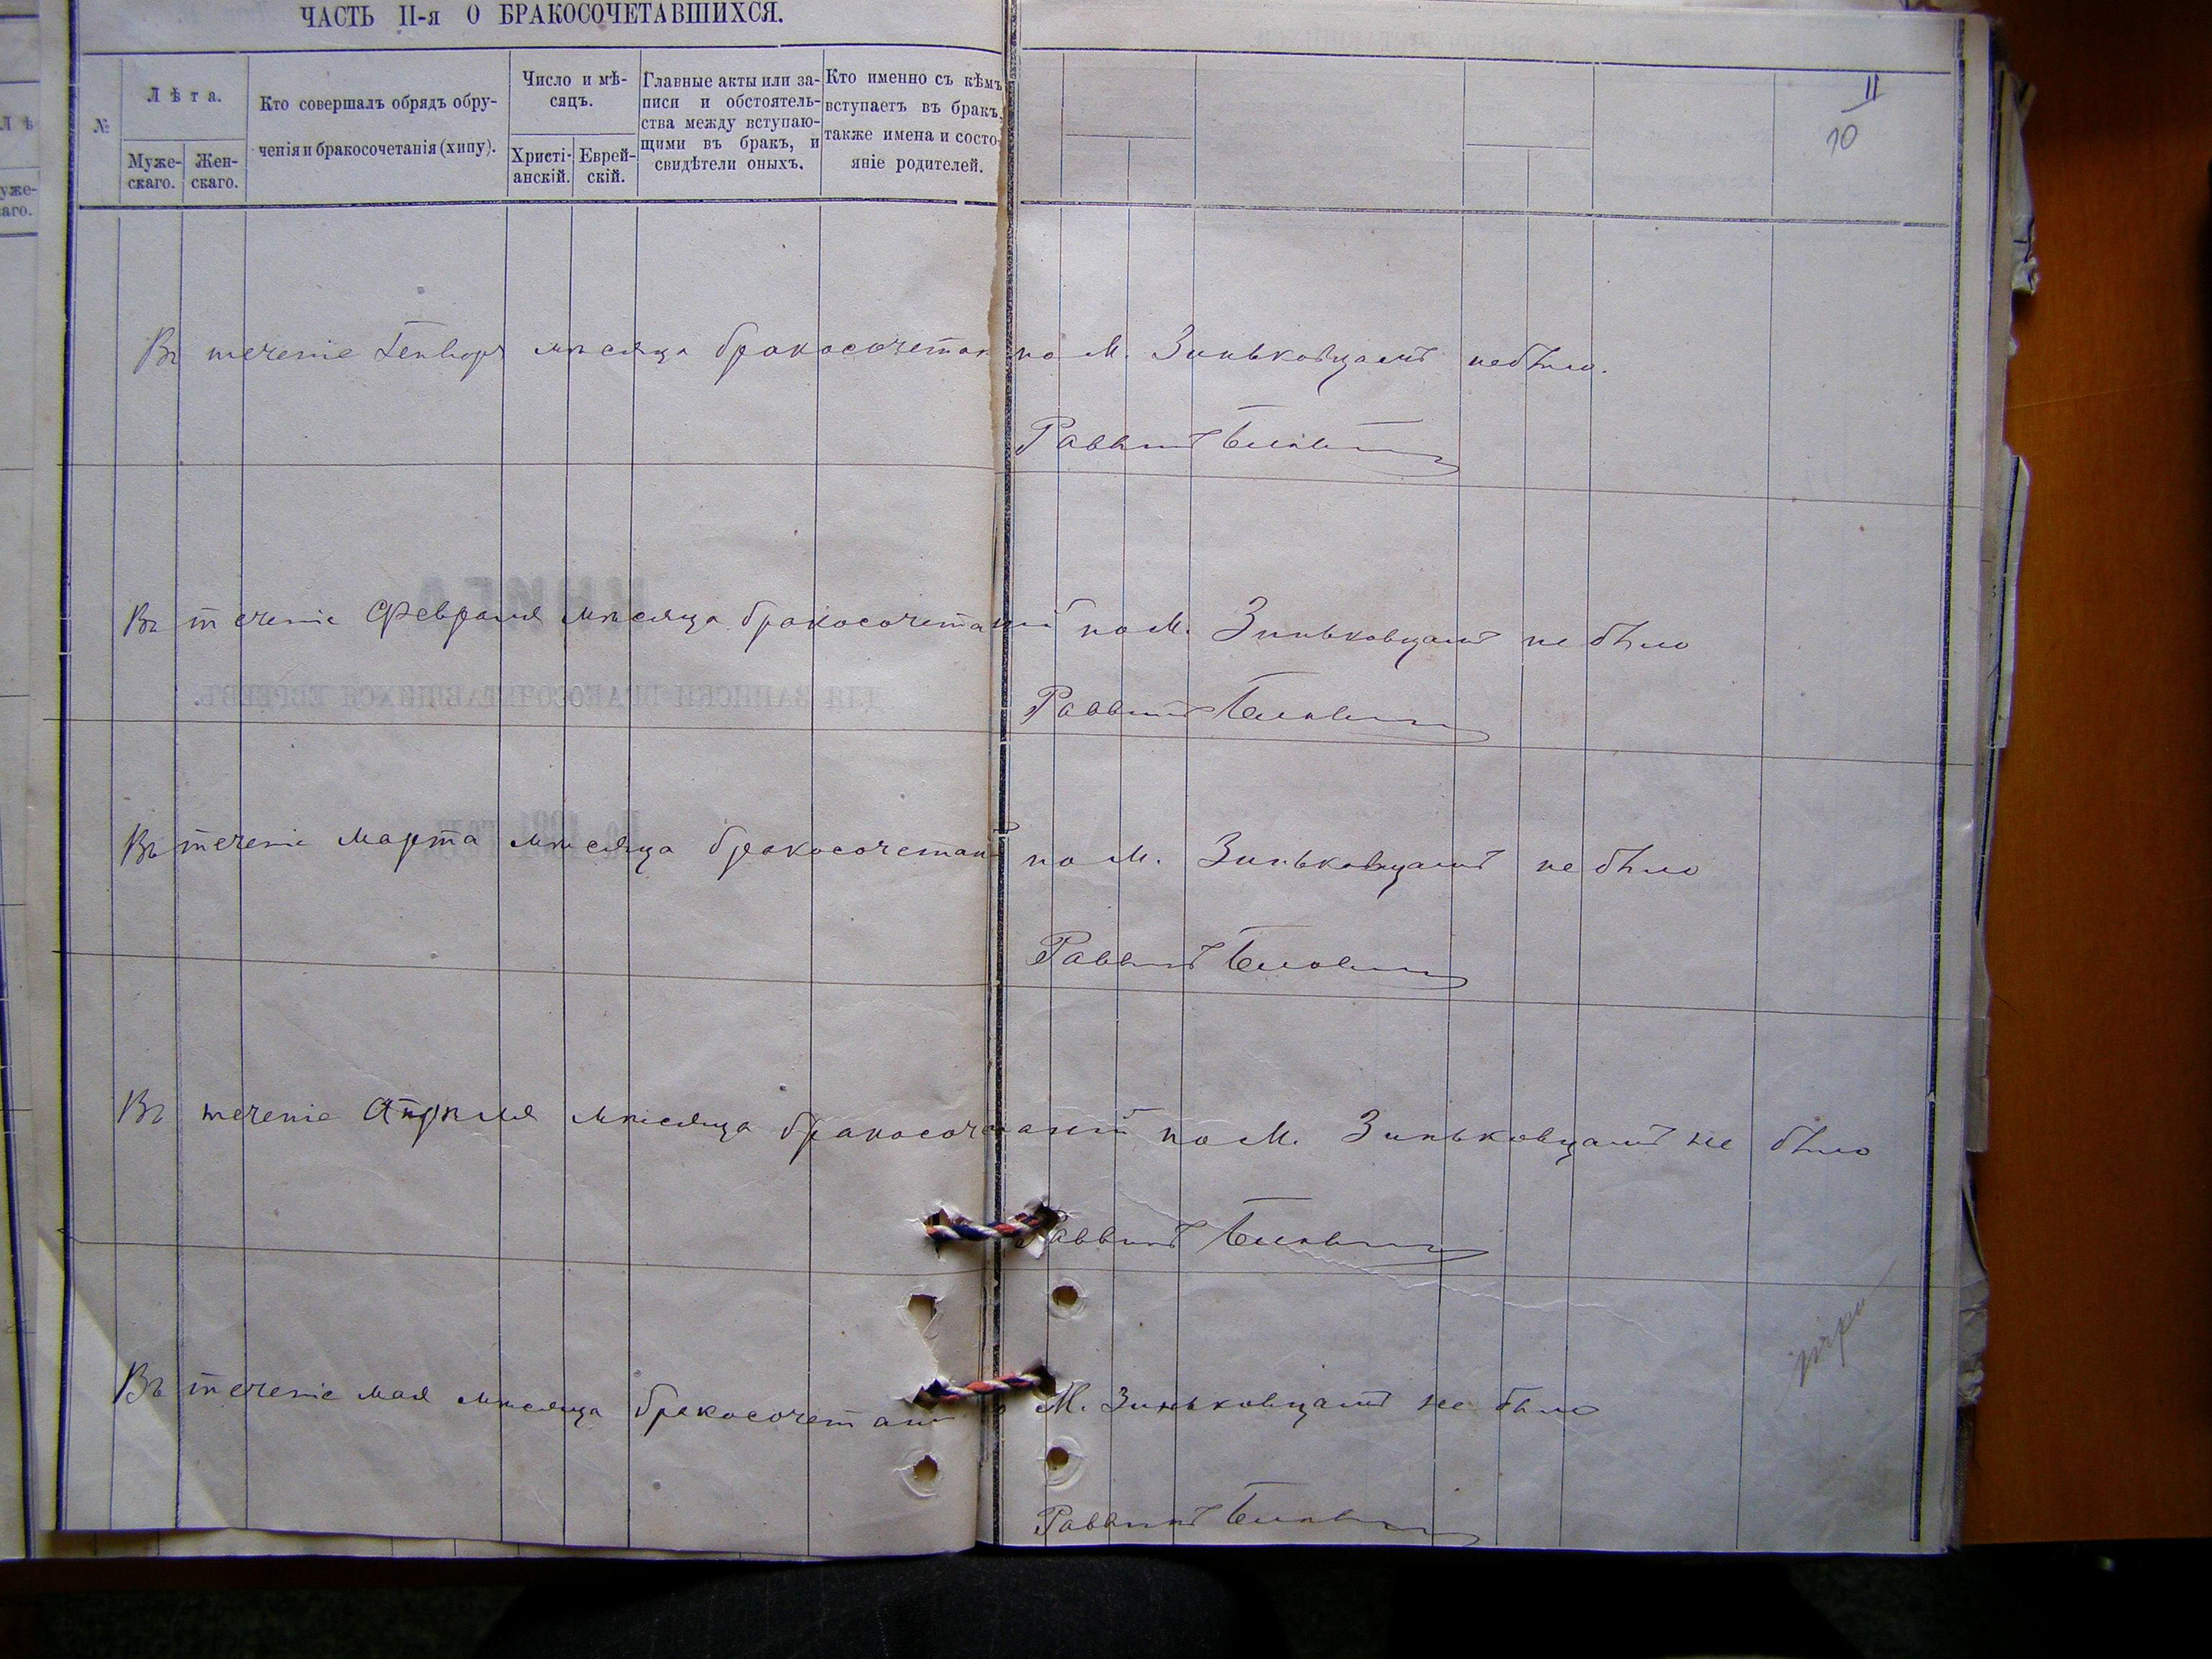 ЧАСТЬ II-я О БРАКОСОЧЕТАВШИХСЯ.
№
Лѣта.
Муже-
скаго.
Жен-
скаго.
Кто совершалъ обрядъ обру-
ченія и бракосочетанія (хипу).
Число и мѣ-
сяцъ.
Христі-
анскій.
Еврей-
скій.
Главные акты или за-
писи и обстоятель-
ства между вступаю-
щими въ бракъ, и
свидѣтели оныхъ.
Кто именно съ кѣмъ
вступаетъ въ бракъ,
также имена и состо-
яніе родителей.
11
10
Въ теченіе Генваря мѣсяца бракосочетан по М. Зиньковцамъ небыло.
Раввинъ
Въ теченіе Февраля мѣсяца бракосочетаній по М. Зиньковцамъ не было
Раввинъ
Въ теченіе Марта мѣсяца бракосочетан по М. Зиньковцамъ не было
Раввинъ
Въ теченіе Апрѣля мѣсяца бракосочетаній по М. Зиньковцамъ не было
Раввинъ
Въ теченіе мая мѣсяца бракосочетани М. Зиньковцамъ не было
Раввинъ